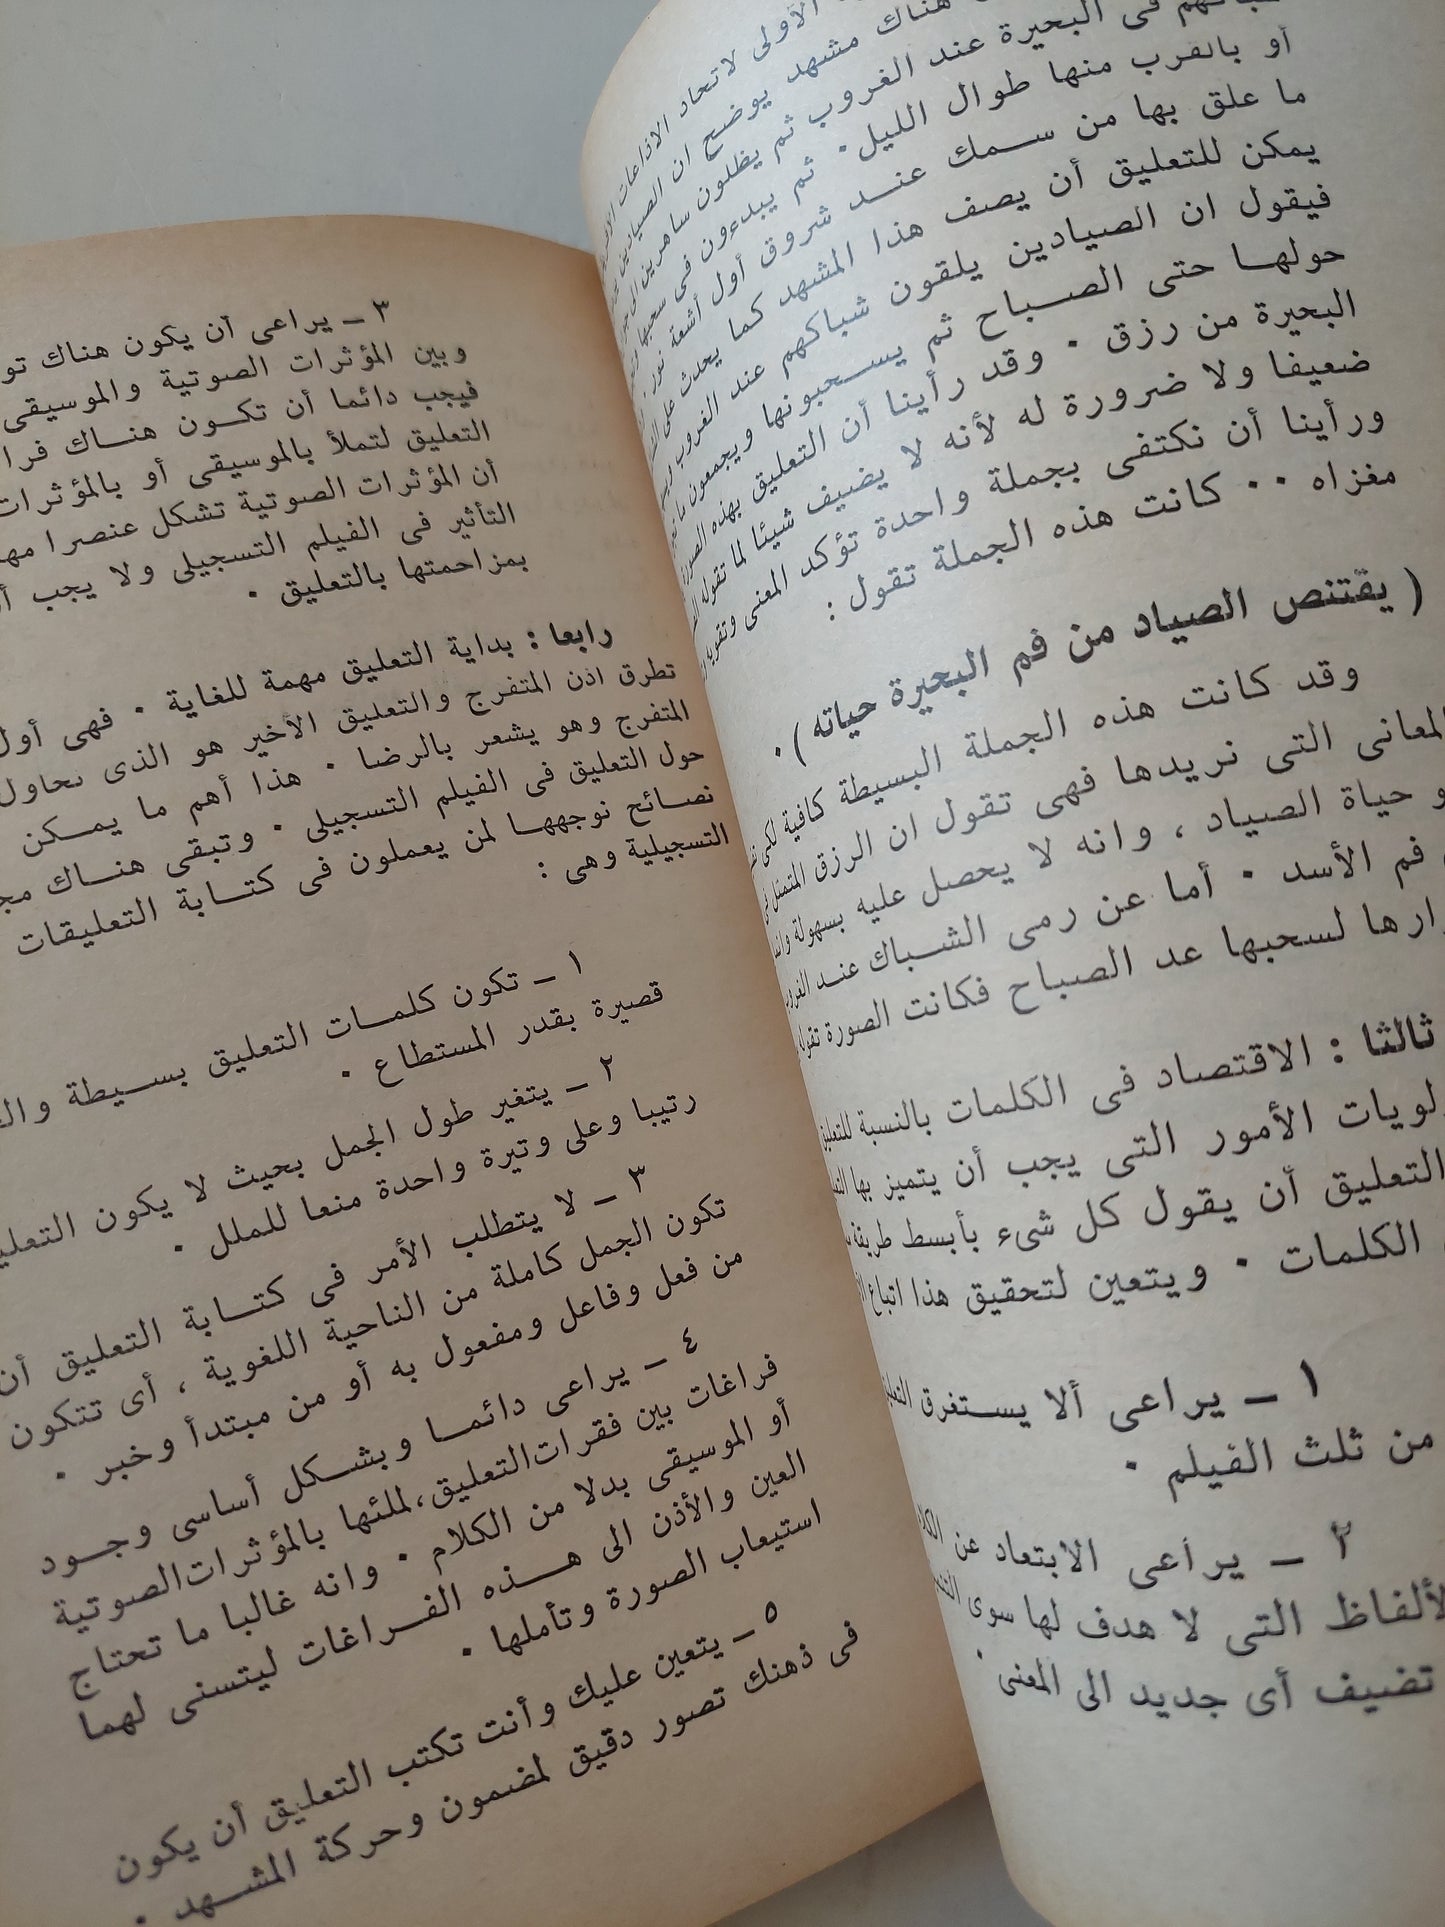 الأولى لاتحاد الاذاعات
هناك مشهد يوضح ان الصيادين
فى البحيرة عند الغروب ثم يظلون ساهرين
أو بالقرب منها طوال الليل . ثم يبدءون فى سحبها
ما علق بها من سمك عند شروق أول أشعة نور .
يمكن للتعليق أن يصف هذا المشهد كما يحدث على
فيقول ان الصيادين يلقون شباكهم عند الغروب
حولها حتى الصباح ثم يسحبونها ويجمعون ما
البحيرة من رزق . وقد رأينا أن التعليق بهذه الصورة
ضعيفا ولا ضرورة له لأنه لا يضيف شيئا لما تقوله
ورأينا أن نكتفى بجملة واحدة تؤكد المعنى وتقويه
مغزاه . . كانت هذه الجملة تقول :
( يقتنص الصياد من فم البحيرة حياته ) .
وقد كانت هذه الجملة البسيطة كافية لكى
المعانى التى نريدها فهى تقول ان الرزق المتمثل فى
حياة الصياد ، وانه لا يحصل عليه بسهولة
فم الأسد . أما عن رمى الشباك عند
لسحبها عد الصباح فكانت الصورة
ثالثا : الاقتصاد فى الكلمات بالنسبة للتعليق
الأمور التى يجب أن يتميز بها
التعليق أن يقول كل شىء بأبسط طريقة
الكلمات . ويتعين لتحقيق هذا اتباع
١ ــ يراعى ألا يستغرق
من ثلث الفيلم .
٢ ــ يراعى الابتعاد عن
الألفاظ التى لا هدف لها سوى
تضيف أى جديد الى المعنى .
٣ ــ يراعى أن يكون هناك
وبين المؤثرات الصوتية والموسيقى
فيجب دائما أن تكون هناك
التعليق لتملأ بالموسيقى أو بالمؤثرات
أن المؤثرات الصوتية تشكل عنصرا
التأثير فى الفيلم التسجيلى ولا يجب
بمزاحمتها بالتعليق .
رابعا : بداية التعليق مهمة للغاية . فهى أول
تطرق اذن المتفرج والتعليق الأخير هو الذى
المتفرج وهو يشعر بالرضا . هذا أهم ما يمكن
حول التعليق فى الفيلم التسجيلى . وتبقى هناك
نصائح نوجهها لمن يعملون فى كتابة التعليقات
التسجيلية وهى :
١ ــ تكون كلمات التعليق بسيطة
قصيرة بقدر المستطاع .
٢ ــ يتغير طول الجمل بحيث لا يكون
رتيبا وعلى وتيرة واحدة منعا للملل .
٣ ــ لا يتطلب الأمر فى كتابة التعليق أن
تكون الجمل كاملة من الناحية اللغوية ، أى تتكون
من فعل وفاعل ومفعول به أو من مبتدأ وخبر .
٤ ــ يراعى دائما وبشكل أساسى وجود
فراغات بين فقرات التعليق ، لملئها بالمؤثرات الصوتية
أو الموسيقى بدلا من الكلام . وانه غالبا ما تحتاج
العين والأذن الى هذه الفراغات ليتسنى لهما
استيعاب الصورة وتأملها .
٥ ــ يتعين عليك وأنت تكتب التعليق أن يكون
فى ذهنك تصور دقيق لمضمون وحركة المشهد .